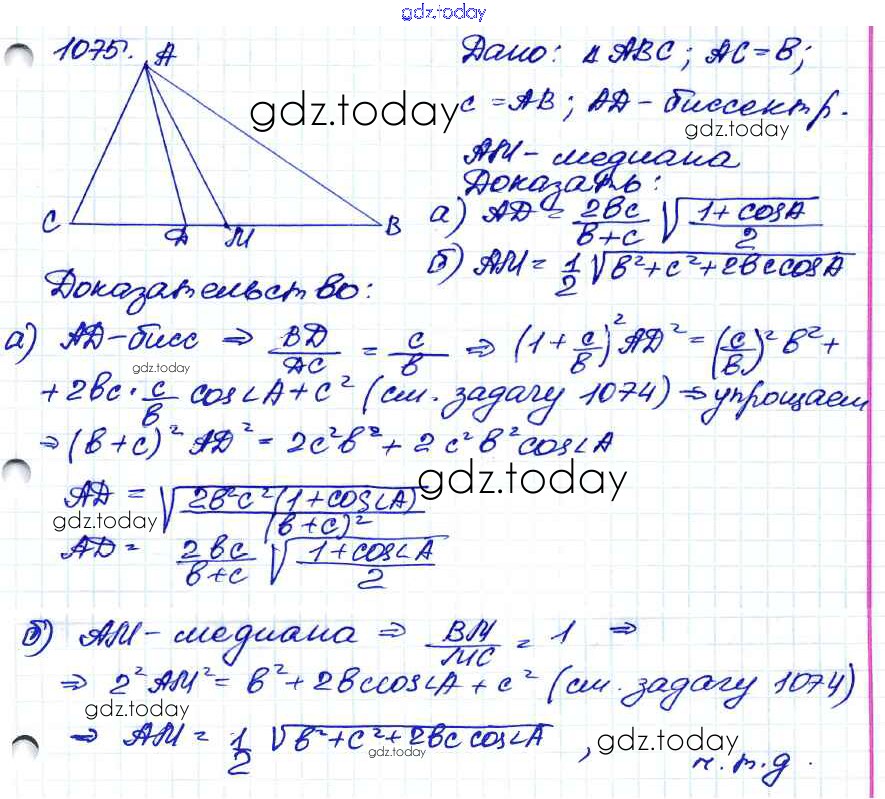 gdz.today
1075.
A
C
D
M
B
Дано: △ ABC; AC = B;
gdz.today
c = AB; AD - биссектр.
gdz.today
AM - медиана
Доказать:
а) AD = 2bc/(b+c) √((1+cosA)/2)
б) AM = 1/2 √(b²+c²+2bccosA)
Доказательство:
а) AD-бисс ⇒ BD/DC = c/b ⇒ (1+c/b)²AD² = (c/b)²b² +
gdz.today
+ 2bc · c/b cos∠A + c² (см. задачу 1074) ⇒ упрощаем
⇒ (b+c)² AD² = 2c²b² + 2c²b²cos∠A
gdz.today
AD = √(2b²c²(1+cos∠A)/(b+c)²)
gdz.today
AD = 2bc/(b+c) √((1+cos∠A)/2)
б) AM - медиана ⇒ BM/MC = 1 ⇒
⇒ 2²AM² = b² + 2bccos∠A + c² (см. задачу 1074)
gdz.today
⇒ AM = 1/2 √(b²+c²+2bccos∠A),
gdz.today
gdz.today
ч.т.д.